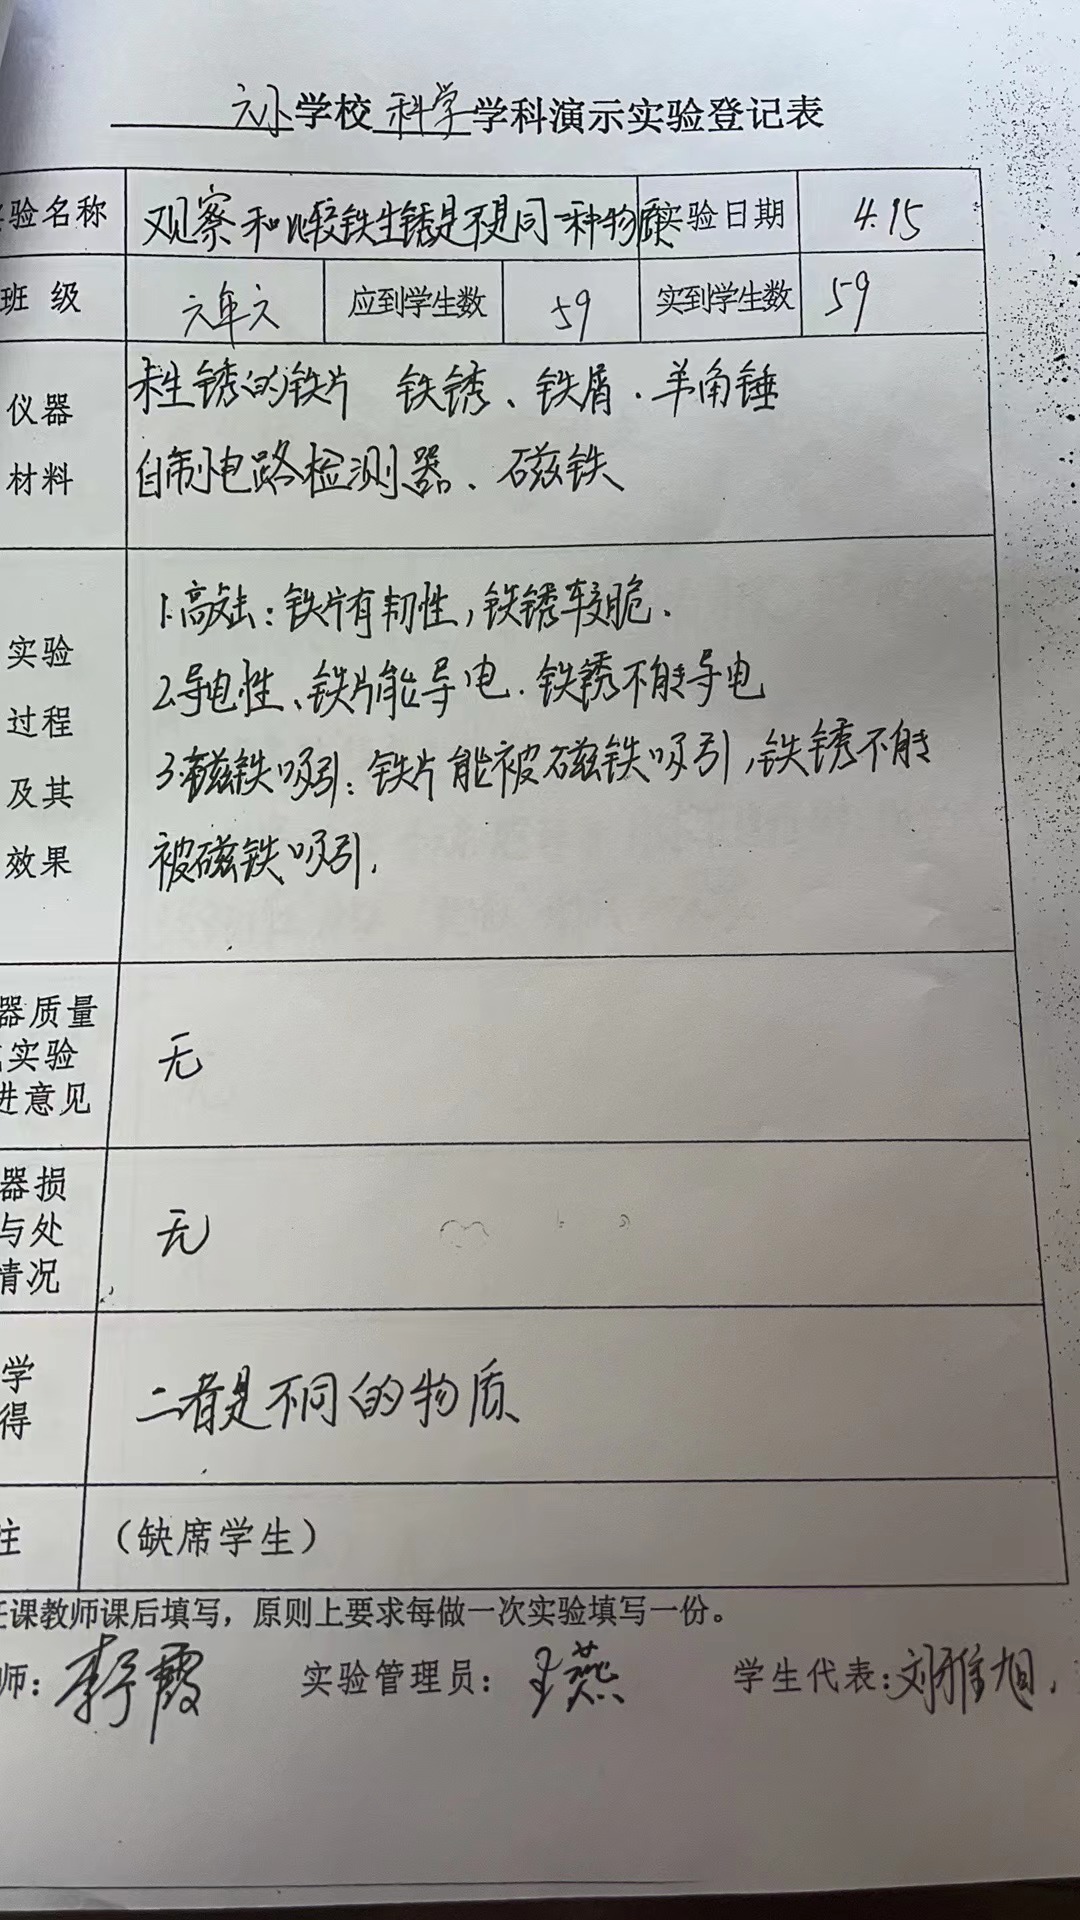 六小学校科学学科演示实验登记表
验名称 观察和比较铁生锈是不是同一种物质 实验日期 4.15
班 级 六年六 应到学生数 59 实到学生数 59
仪器 未生锈的铁片 铁锈、铁屑.羊角锤
材料 自制电路检测器、磁铁
实验 1.敲击:铁片有韧性,铁锈较脆.
过程 2.导电性、铁片能导电.铁锈不能导电
及其 3.磁铁吸引:铁片能被磁铁吸引,铁锈不能
效果 被磁铁吸引.
器质量
实验 无
进意见
器损
与处 无
情况
学
得 二者是不同的物质
注 (缺席学生)
任课教师课后填写,原则上要求每做一次实验填写一份。
师: 李霞 实验管理员: 王燕 学生代表:刘雅旭.